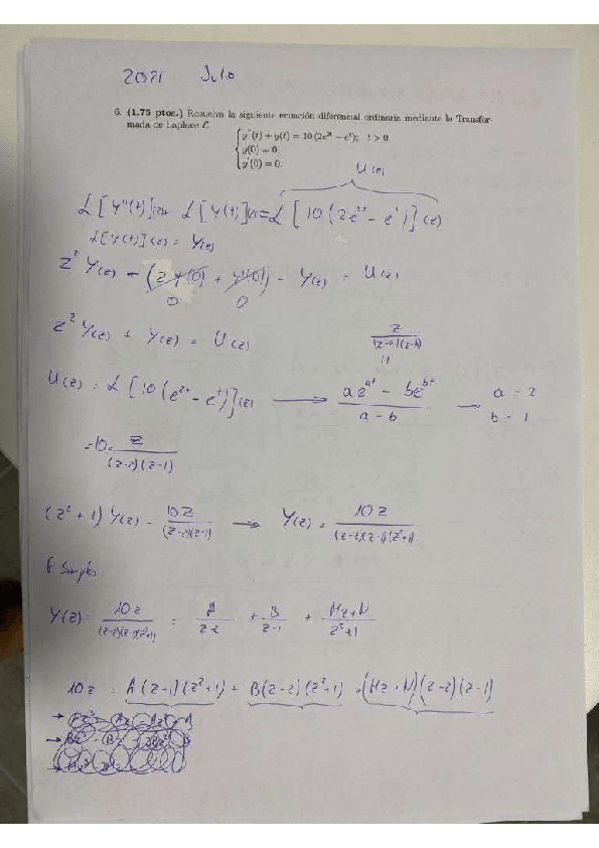 2021 Julio
6. (1.75 ptos.) Resuelva la siguiente ecuación diferencial ordinaria mediante la Transfor-
mada de Laplace ℒ.
y''(t) + y(t) = 10(2e^{2t} − e^t); t > 0
y(0) = 0,
y'(0) = 0.
U(z)
ℒ[y''(t)](z) + ℒ[y(t)](z) = ℒ[10(2e^{2t} − e^t)](z)
ℒ[y(t)](z) = Y(z)
z² Y(z) − (z y(0) + y'(0)) − Y(z) = U(z)
0 0
z² Y(z) + Y(z) = U(z)
z/((z-a)(z-b))
U(z) = ℒ[10(e^{2t} − e^t)](z) → (ae^{at} − be^{bt})/(a − b) → a = 2
b = 1
= 10 · z/((z-2)(z-1))
(z² + 1) Y(z) = 10z/((z-2)(z-1)) → Y(z) = 10z/((z-2)(z-1)(z²+1))
F Simples
Y(z) = 10z/((z-2)(z-1)(z²+1)) = A/(z-2) + B/(z-1) + (Mz+N)/(z²+1)
10z = A(z-1)(z²+1) + B(z-2)(z²+1) + (Mz+N)(z-2)(z-1)